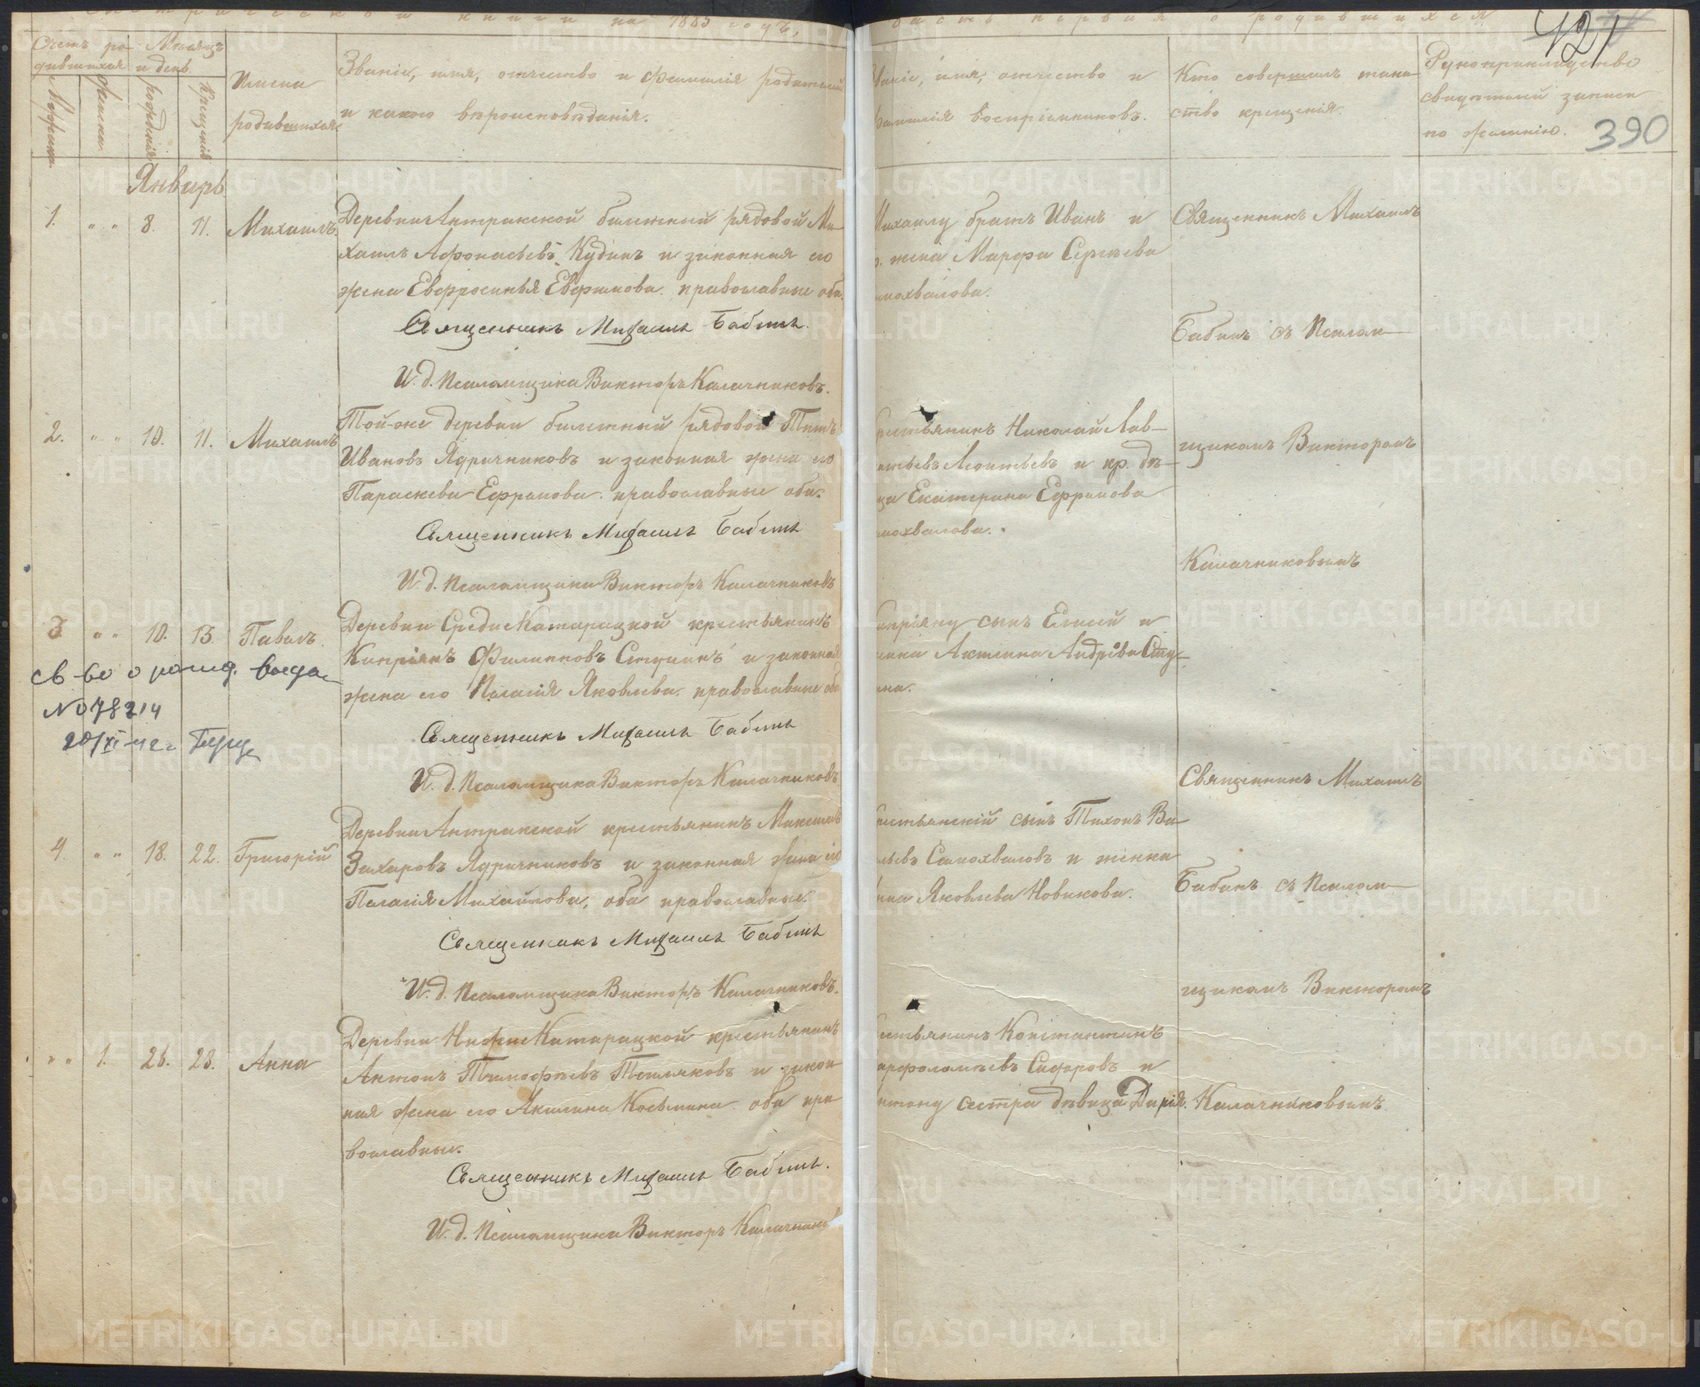 книги на 1885 годъ,
часть первая о родившихся
421
390
Счетъ ро-
дившихся
Мѣсяцъ
и день
Мужска
Женска
рожденія
крещенія
Имена
родившихся
Званіе, имя, отчество и фамилія родителей
и какого вѣроисповѣданія.
Званіе, имя, отчество и
фамилія воспріемниковъ.
Кто совершалъ таин-
ство крещенія.
Рукоприкладство
свидѣтелей записи
по желанію.
Январь
1. " " 8. 11. Михаилъ
Деревни Антракской билетный рядовой Ми-
хаилъ Афонасьевъ Кудинъ и законная его
жена Евфросинья Евфимова православные оба.
Священникъ Михаилъ Бабинъ.
И. д. Псаломщика Викторъ Калачниковъ.
Михаилу братъ Иванъ и
жена Марфа Сергѣева
мохвалова.
Священникъ Михаилъ
Бабинъ съ Псалом-
2. " " 10. 11. Михаилъ
Той-же деревни билетный рядовой Петръ
Ивановъ Ядричниковъ и законная жена его
Параскева Ефремова православные оба.
Священникъ Михаилъ Бабинъ
И. д. Псаломщика Викторъ Калачниковъ
крестьянинъ Николай Лав-
Леонтьевъ и кр. дѣ-
ца Екатерина Ефремова
мохвалова.
щикомъ Викторомъ
Калачниковымъ
3 " " 10. 13. Павелъ
Деревни Средне Катарацкой крестьянинъ
Кипріянъ Филипповъ Ступинъ и законная
жена его Пелагія Яковлева православные оба
Священникъ Михаилъ Бабинъ
И. д. Псаломщика Викторъ Калачниковъ
св-во о рожд. выда-
№ 078214
20/XI-42г
Кипріяну сынъ Елисей и
Акилина Андреева Сту-
на.
4. " " 18. 22. Григорій
Деревни Антракской крестьянинъ Максимъ
Захаровъ Ядричниковъ и законная жена его
Пелагія Михайлова, оба православные.
Священникъ Михаилъ Бабинъ
И. д. Псаломщика Викторъ Калачниковъ.
крестьянскій сынъ Тихонъ Ва-
льевъ Самохваловъ и женка
Яковлева Новикова.
Священникъ Михаилъ
Бабинъ съ Псалом-
щикомъ Викторомъ
" " 1. 26. 28. Анна
Деревни Нижне Катарацкой крестьянинъ
Антонъ Тимофѣевъ Тепляковъ и закон-
ная жена его Акилина Косьмина оба пра-
вославные.
Священникъ Михаилъ Бабинъ.
И. д. Псаломщика Викторъ Калачниковъ
крестьянинъ Константинъ
арфоломѣевъ Сидоровъ и
Антону сестра дѣвица Дарія.
Калачниковымъ
METRIKI.GASO-URAL.RU